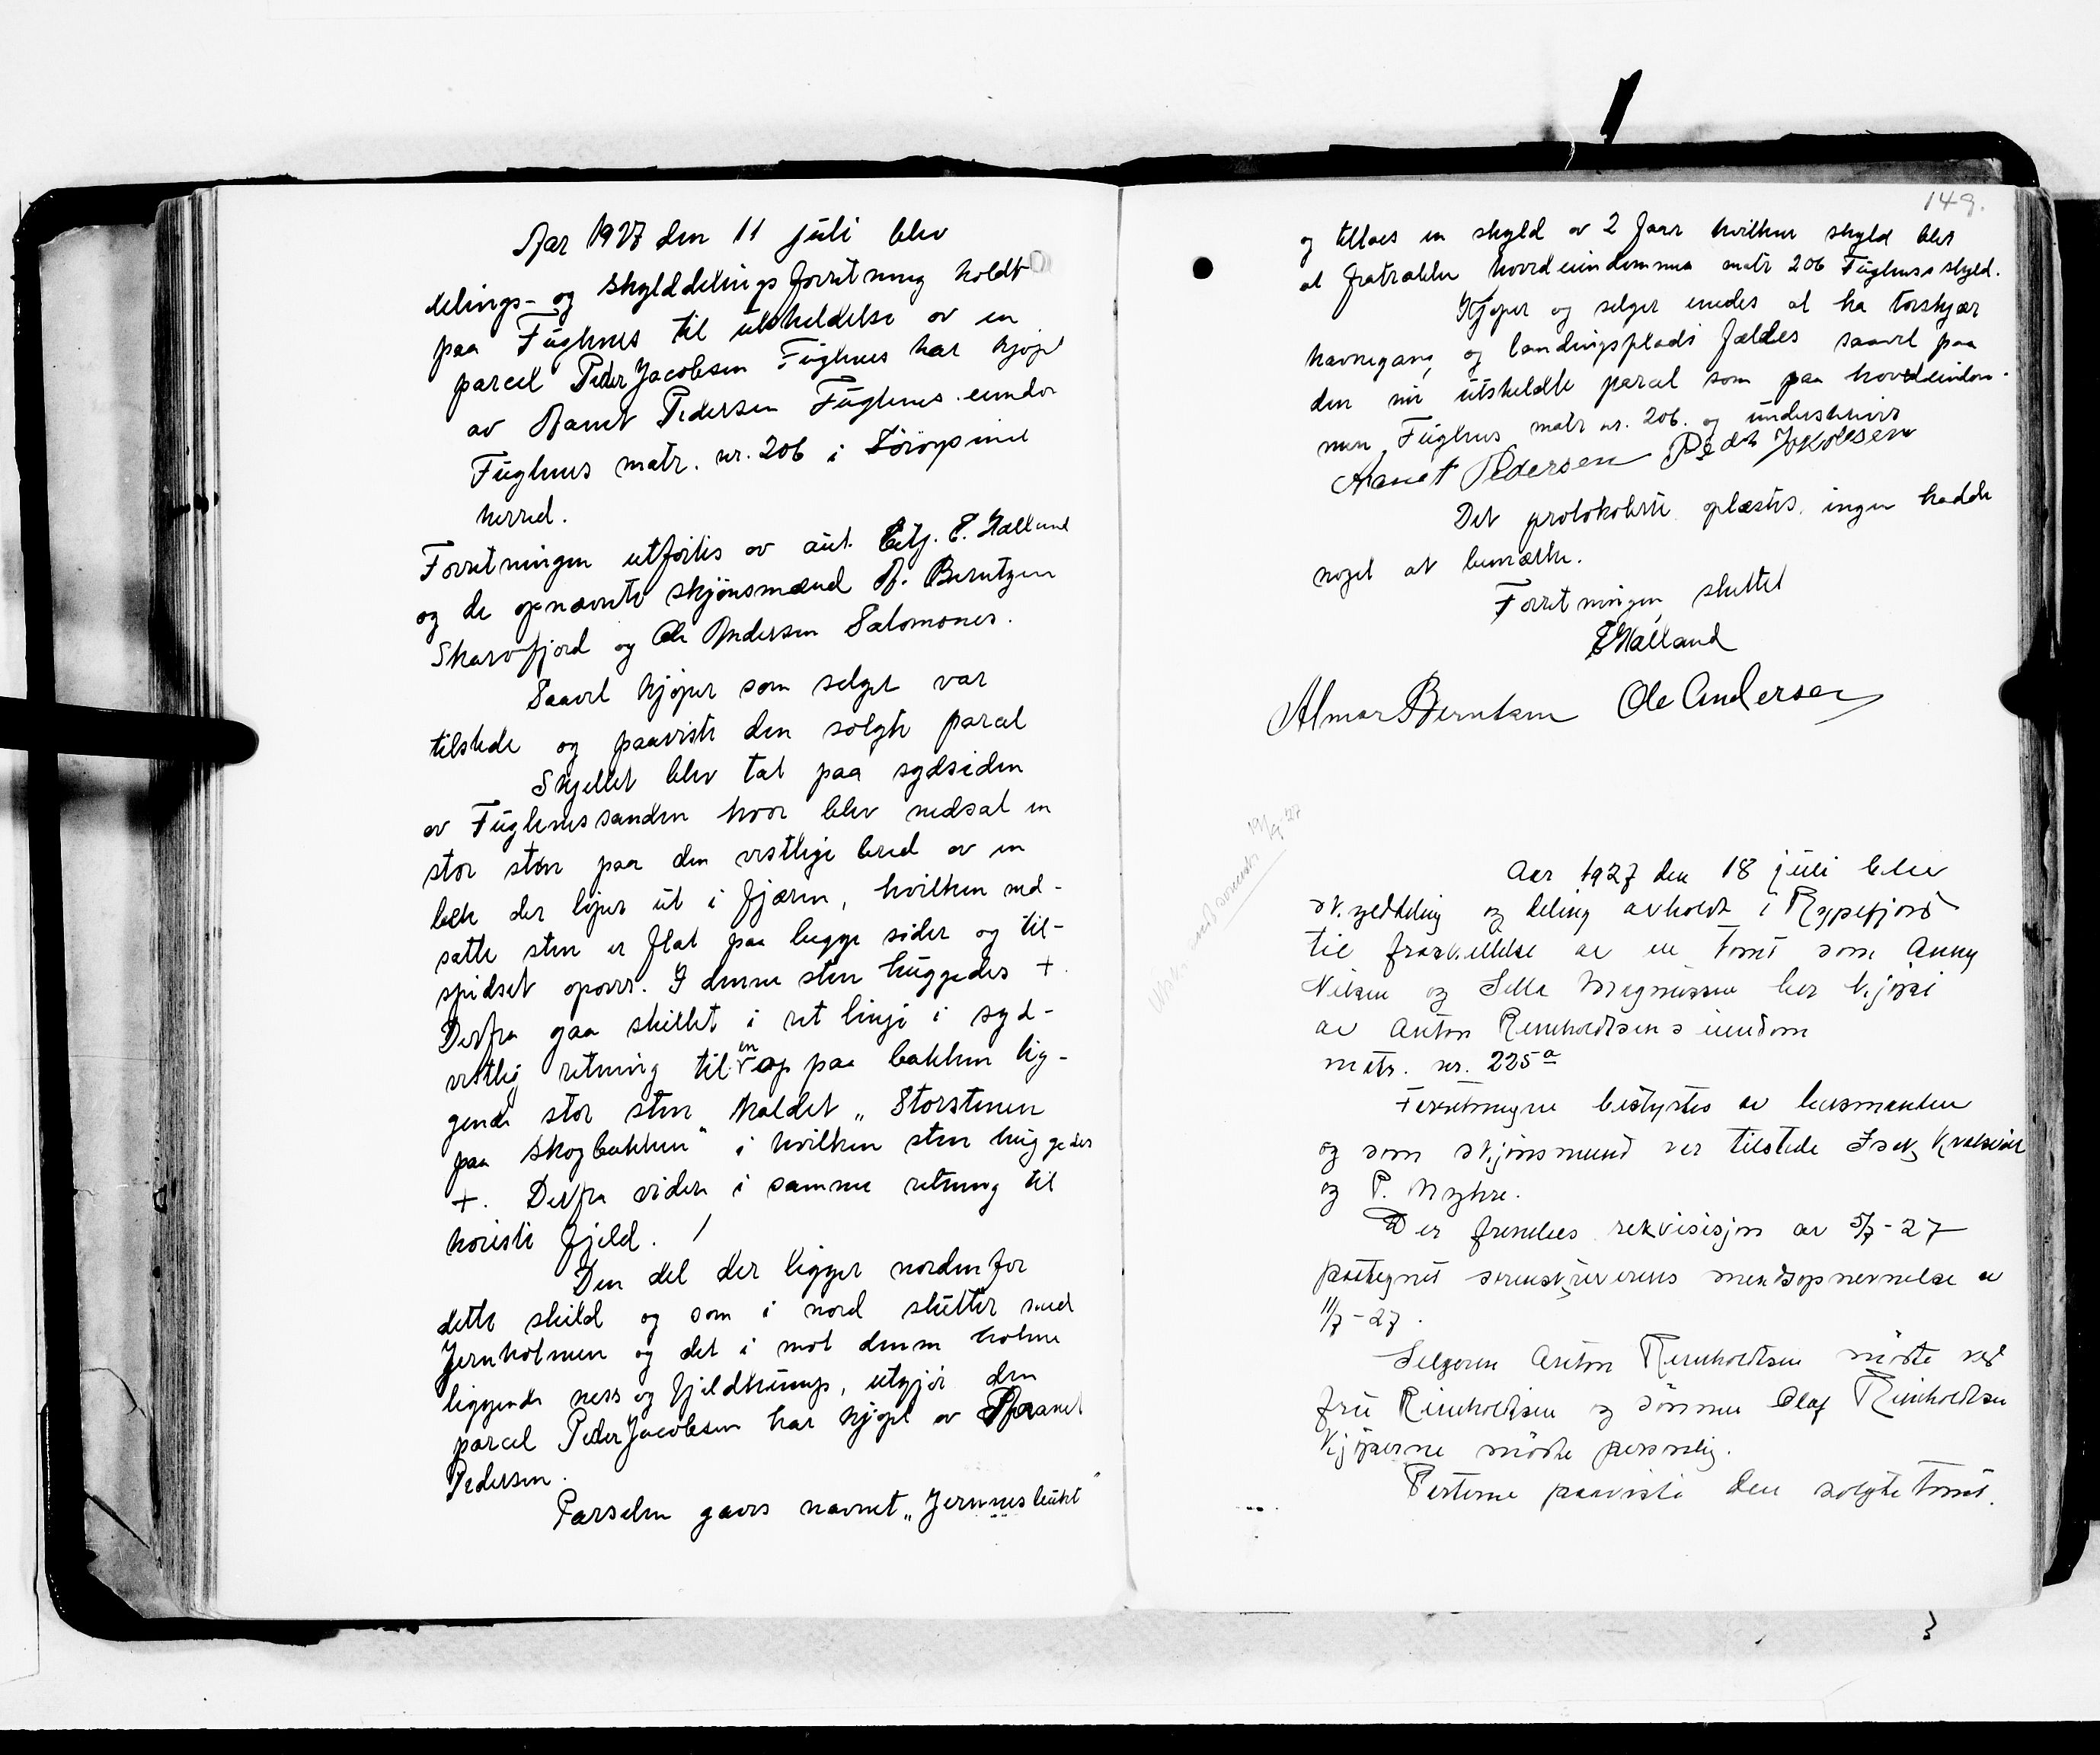 Aar 1927 den 11 juli blev
delings- og skylddelingsforretning holdt
paa Fuglenes til utskeldelse av en
parcel Peder Jacobsen Fuglenes har kjøpt
av Aanet Pedersen Fuglenes eiendom
Fuglenes matr. nr. 206 i Sørøysund
herred.
Forretningen utførtes av aut. betj. E. Halland
og de opnævnte skjønsmænd A. Berntzen
Skarvfjord og Ole Andersen Salomones.
Saavel kjøper som selger var
tilstede og paaviste den solgte parcel
Skjellet blev tat paa sydsiden
av Fuglenessanden hvor blev nedsat en
stor sten paa den vestlige bred av en
bek der løper ut i fjæren, hvilken ned-
satte sten er flat paa begge sider og til-
spidset opover. I denne sten huggedes +.
Derfra gaa skillet i ret linje i syd-
vestlig retning til en op paa bakken lig-
gende stor sten kaldet „Storstenen
paa Skogbakken" i hvilken sten huggedes
+. Derfra videre i samme retning til
høieste fjeld. /
Den del der ligger nordenfor
dette skild og som i nord slutter med
Jernholmen og det i mot denne holme
liggende ness og fjeldkump, utgjør den
parcel Peder Jacobsen har kjøpt av Aanet
Pedersen.
Parselen gaves navnet „Jernnesbukt"
149.
og tillaes en skyld av 2 øre hvilken skyld blir
at fratrække hovedeiendommen matr 206 Fuglenes skyld.
Kjøper og selger enedes at ha torskjær
havnegang og landingsplads fælles saavel paa
den nu utskeldte parcel som paa hovedeiendom-
men Fuglenes matr nr. 206. og underskriver
Aanet Pedersen Peder Jakobsen
Det protokolerte oplæstes. ingen hadde
noget at bemærke.
Forretningen sluttet
E Halland
Almar Berntsen Ole Andersen
19/9-27
Aar 1927 den 18 juli blev
skylddeling og deling avholdt i Rypefjord
til fraskillelse av en tomt som Anny
Nilsen og Sella Magnussen har kjøpt
av Anton Reinholdtsens eiendom
matr. nr. 225 a
Forretningen bestyrtes av lensmanden
og som skjønsmænd var tilstede Isak Kvalsvik
og P. Myhre.
Der fremlaes rekvisisjon av 5/7-27
paategnet sorenskriverens mendsopnevnelse av
11/7-27.
Selgeren Anton Reinholdtsen møtte ved
fru Reinholdtsen og sønnen Olaf Reinholdtsen
Kjøperne møtte personlig.
Parterne paaviste den solgte tomt.